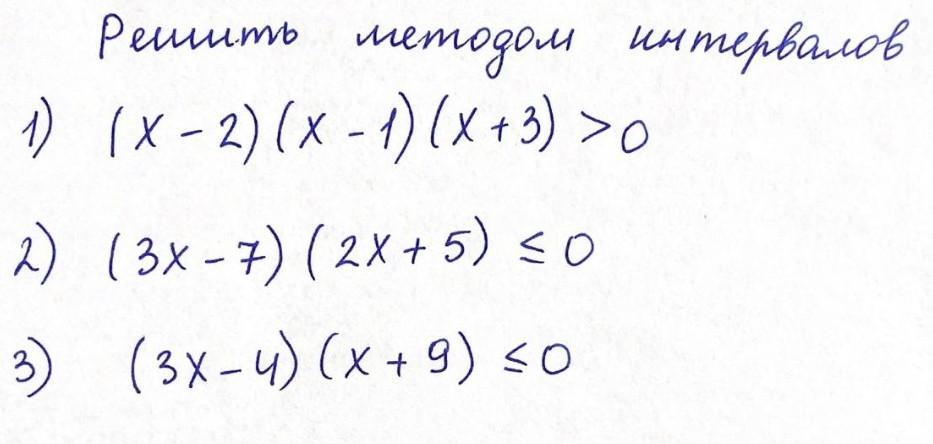 Решить методом интервалов
1) (x - 2) (x - 1) (x + 3) > 0
2) (3x - 7) (2x + 5) ≤ 0
3) (3x - 4) (x + 9) ≤ 0